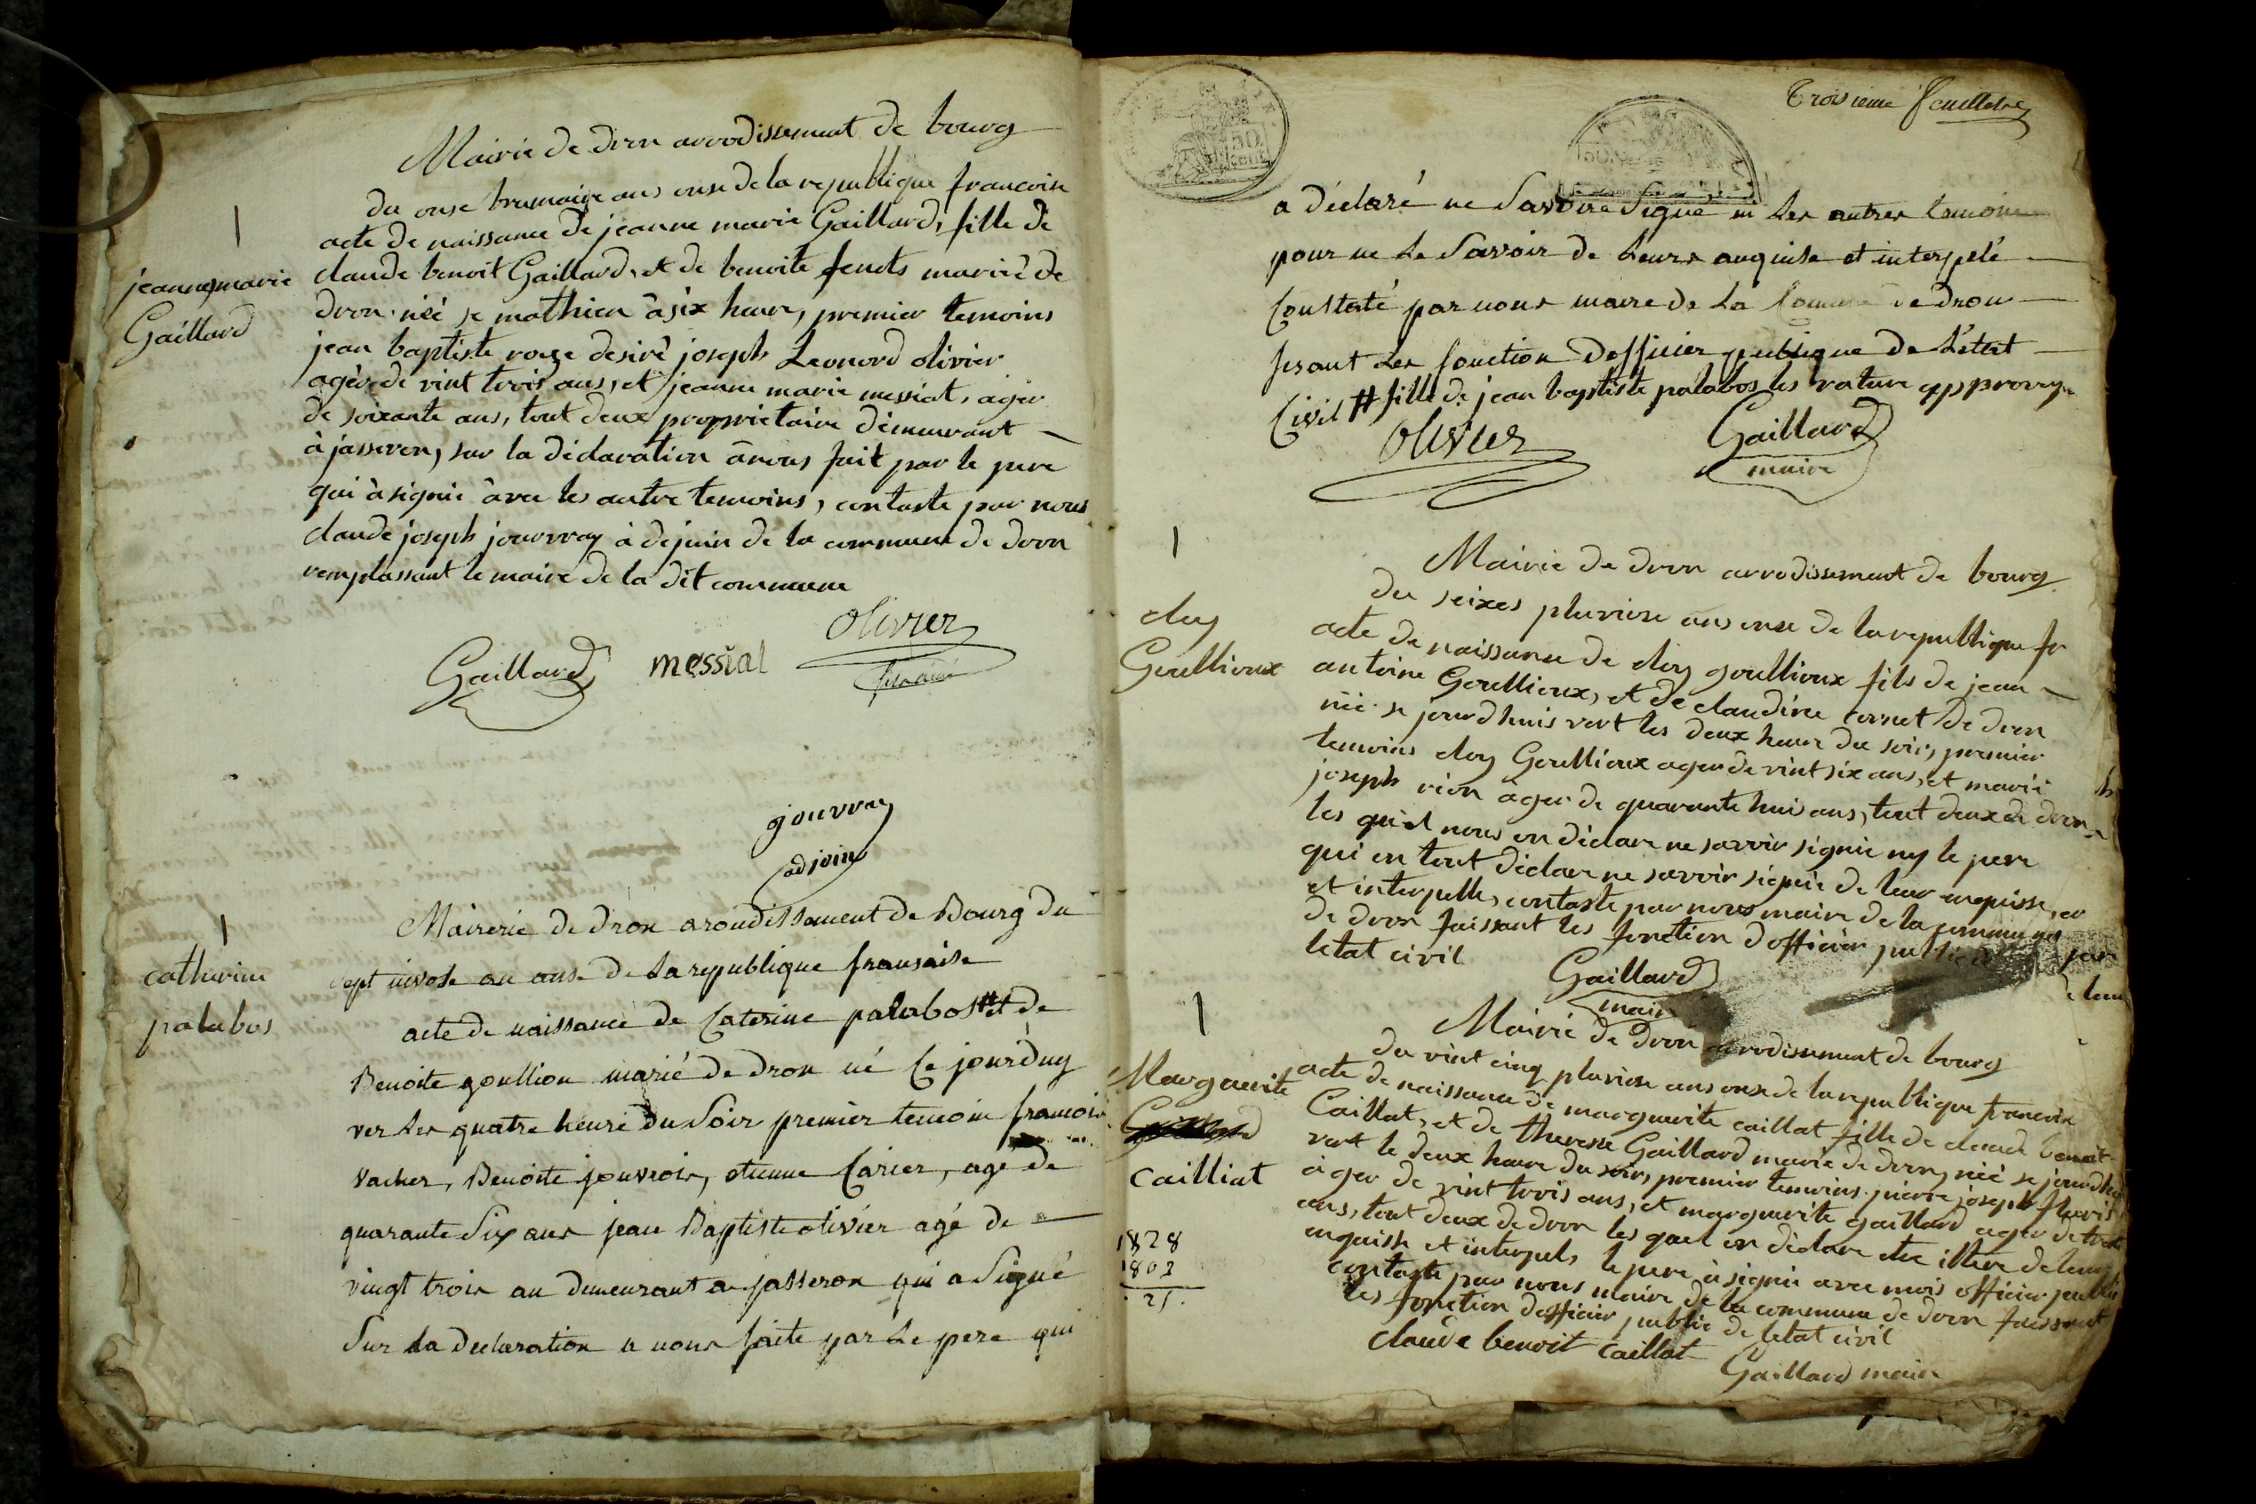 Mairie de dron arrodissement de bourg
du onse brumaire ans onse de la republique francoise
acte de naissance de jeanne marie Gaillard, fille de
jeanne marie
Gaillard
claude benoit Gaillard, et de benoite fenets mariéê de
dron née se mathien à six heure, premier temoins
jean baptiste rouge desiré joseph Leonord olivier
agér de vint trois ans, et jeanne marie messiat, ager
de soixante ans, tout deux proprietaire démeurant
à jasseron, sur la déclaration ànous fait par le pere
qui à signie àvec les autre temoins, contaste par nous
claude joseph jouvray à dejuin de la commune de dron
remplassant le maire de la dit commune
Gaillard messial Olivier
temoin
gouvray
adjoin
catherine
palabos
Mairerie de dron arondissement de Bourg du
sept nivose an onse de la republique fransaise
acte de naissance de Caterine palabos # et de
Benoite goullion marié de dron né Ce jourduy
ver les quatre heure du Soir premier temoin francois
vacher, Benoite jouvroir, etienne Carier, age de
quarante Six ans jean Baptiste olivier agé de
vingt trois an demeurant a jasseron qui a Signé
Sur la declaration a nous faite par Le pere qui
Troisieme feuillet
50 cent
a déclaré ne Savoire Signé ni Les autres temoins
pour ne Le Savoir de Leurs anquise et interpelé
Constaté par nous maire de La Commune de dron
fesant Les fonction Dofficier publique de L'etat
Civil # fille de jean baptiste palabos les rature approuvez
Olivier Gaillard
maire
Mairie de dron arrodissement de bourg
du seixes pluviose ans onse de la republique fr
cloy
Goullioux
acte de naissance de cloy goullioux fils de jean
antoine Goullioux, et de claudine cornet de dron
néé se jourdhuis vert les deux heure du soir, premier
temoins cloy Goullioux ager de vint six ans, et marié
joseph rion àger de quarante huis ans, tout deux de dron
les quel nous on déclare ne savoir signie ny le pere
qui on tout déclare ne savoir signie de leur enquisse, et
et interpelle, contaste par nous maire de la commune
de dron faissant les fonction d officier public
letat civil
Gaillard
maire
Mairie de dron arrodissement de bourg
du vint cinq pluviose ans onse de la republique francoise
Marguerite
Cailliat
acte de naissance de marguerite caillat fille de claude benoit
Caillat, et de therese Gaillard marie de dron, néé se jourdhui
vert le deux heure du soir, premier temoins pierre joseph fleuris
àger de vint trois ans, et marguerite gaillard ager de trente
ans, tout deux de dron les quel on déclare etre illtere de leur
enquisse et interpels le pere à signie avec mois officier public
contaste par nous maire de la commune de dron faissant
les fonction dofficier public de letat civil
1828
1802
21.
claude benoit caillat
Gaillard maire